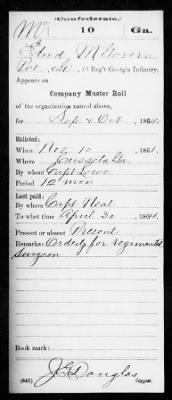 Confederate.
Mc 10 Ga.
McGovern
Pvt, Co. , 10 Reg't Georgia Infantry.
Appears on
Company Muster Roll
of the organization named above,
for Sep & Oct , 1864.
Enlisted:
When Nov 10 , 1861.
Where Ga.
By whom Capt Lowe
Period 12 mon
Last paid:
By whom Capt Neal
To what time April 30 , 1864.
Present or absent Present
Remarks: Orderly for regimental
surgeon
Book mark:
J. G. Douglas
(642) Copyist.